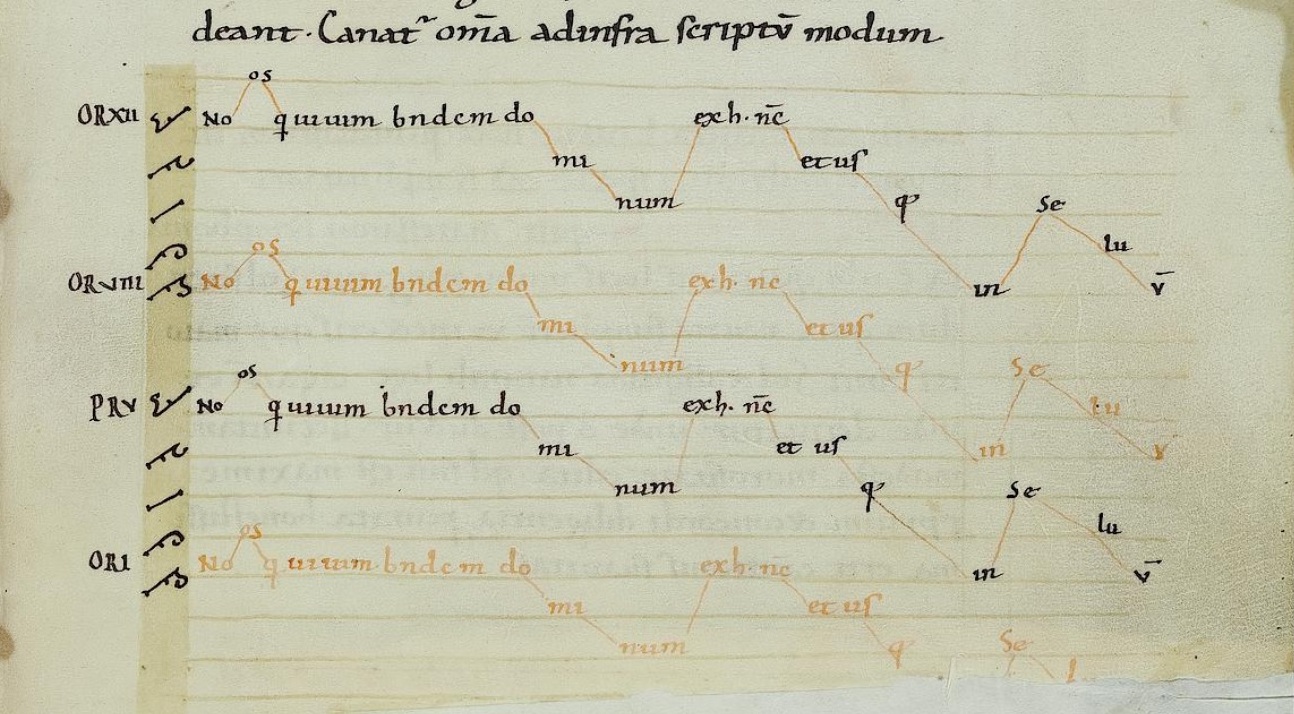 deant. Canat̃ om̄a adinfra scriptū modum
os
ORXII No quiuim bndcm do exh. nc̄
mi et us
num q Se
lu
in v̄
os
ORVIII No quiuim bndcm do exh. nc
mi et us
num q Se
lu
in v
os
PRV No quiuim bndcm do exh. nc̄
mi et us
num q Se
lu
in v̄
os
ORI No quiuim bndcm do exh. nc
mi et us
num q Se